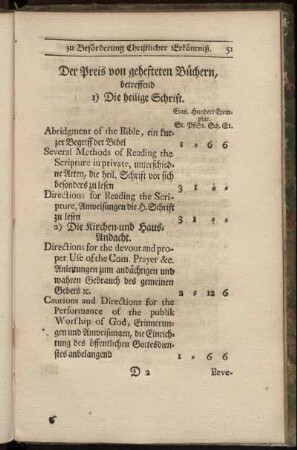 zu Beförderung Christlicher Erkäntniß. 51
Der Preis von gehefteten Büchern,
betreffend
1) Die heilige Schrift.
Eins. Hundert Exem-
plar.
St. Pf St. Sch. St.
Abridgment of the Bible, ein kur-
zer Begriff der Bibel 1 = 6 6
Several Methods of Reading the
Scripture in private, unterschied-
ne Arten, die heil. Schrift vor sich
besonders zu lesen 3 1 = =
Directions for Reading the Scri-
pture, Anweisungen die H. Schrift
zu lesen 3 1 = =
2) Die Kirchen-und Haus-
Andacht.
Directions for the devout and pro-
per Use of the Com. Prayer &c.
Anleitungen zum andächtigen und
wahren Gebrauch des gemeinen
Gebets ꝛc. 2 = 12 6
Cautions and Directions for the
Performance of the publik
Worship of God, Erinnerun-
gen und Anweisungen, die Einrich-
tung des öffentlichen Gottesdien-
stes anbelangend 1 = 6 6
D 2 Beve-